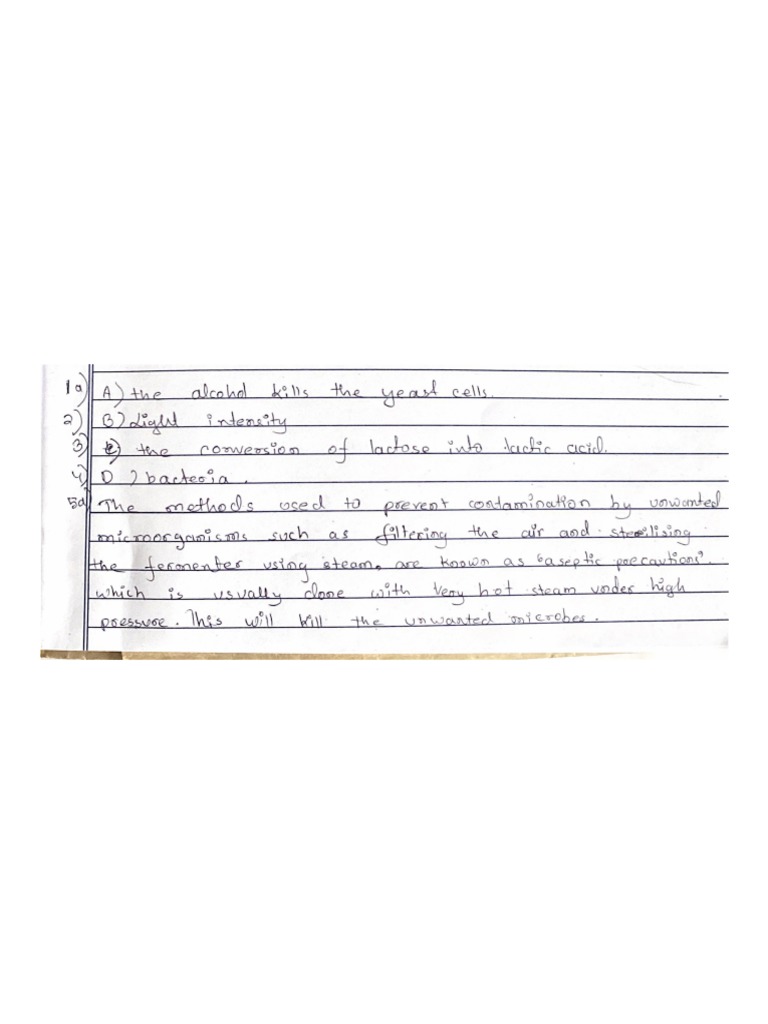 1a) A) the alcohol kills the yeast cells.
2) B) Light intensity
3) C) the conversion of lactose into lactic acid.
4) D) bacteria.
5a) The methods used to prevent contamination by unwanted
micmorganisms such as filtering the air and sterilising
the feromenter using steam, are known as 'aseptic precautions'.
which is usually done with very hot steam under high
pressure. This will kill the unwanted microbes.